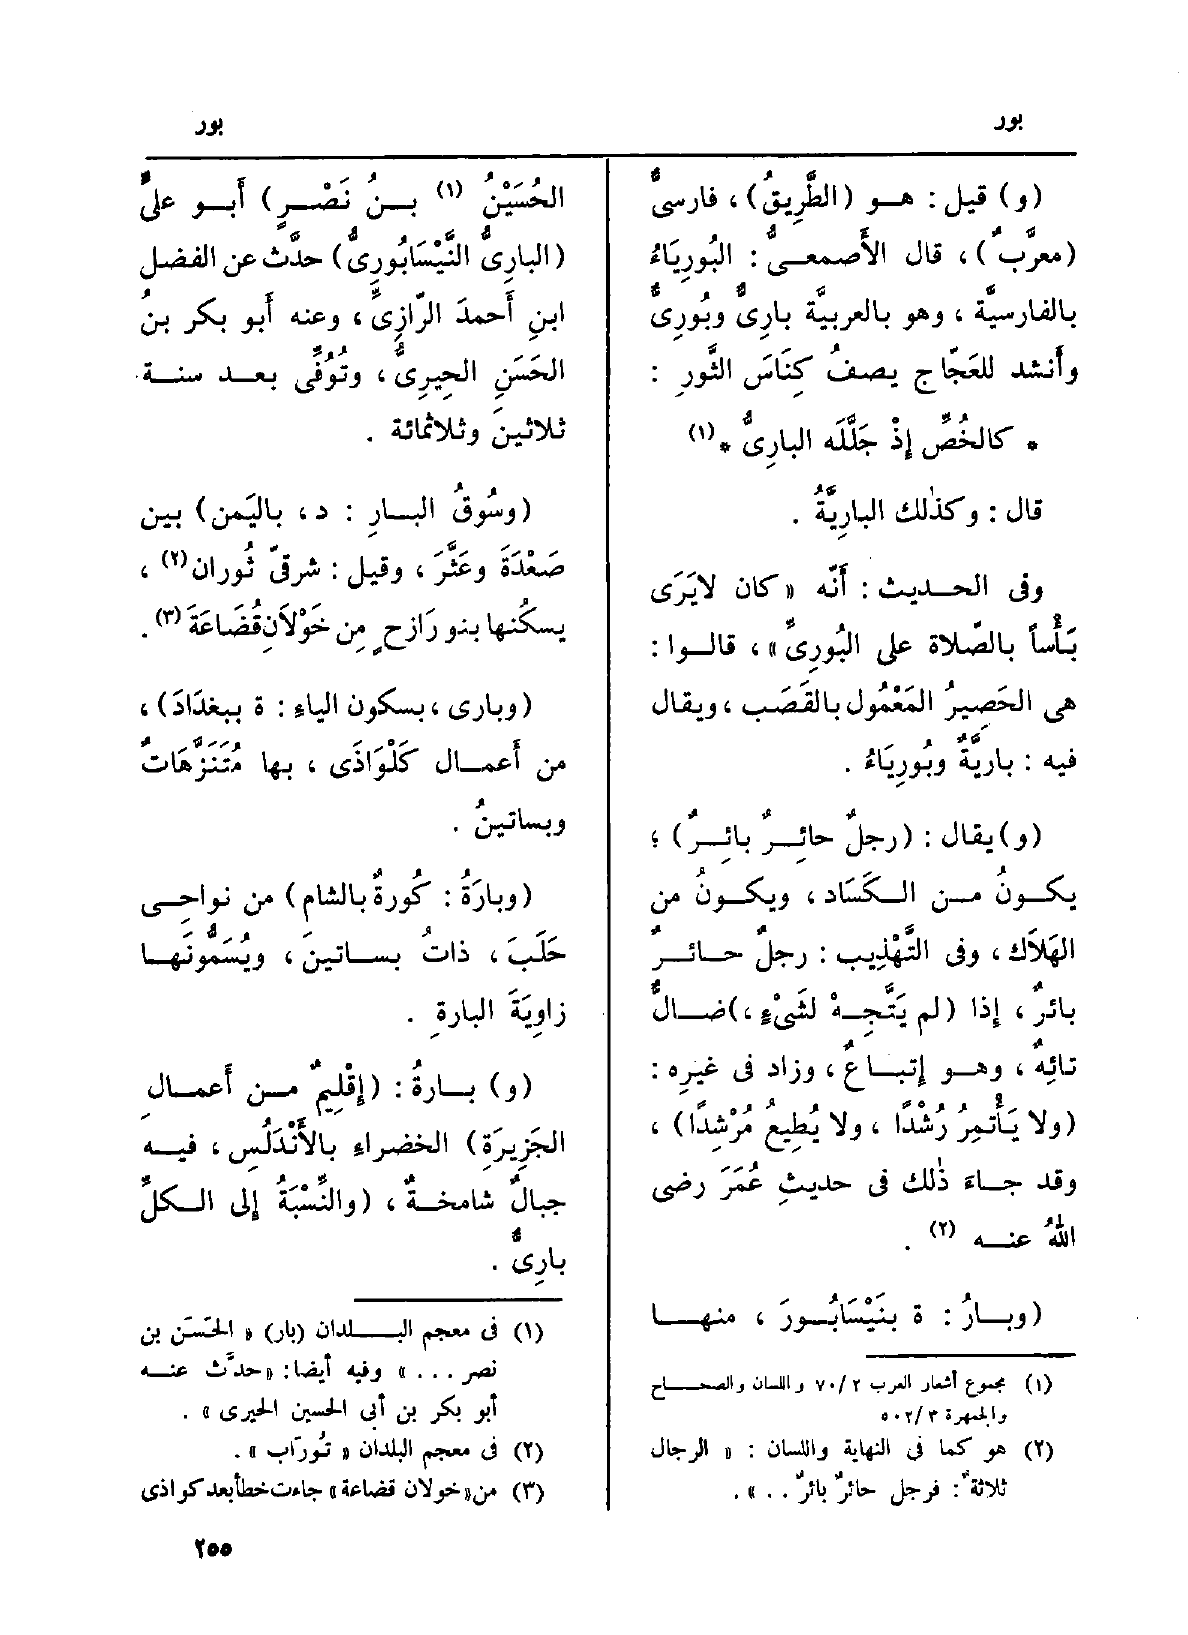 بور
(و) قيل : هـو (الطَّرِيقُ) ، فارسىٌّ
(معرَّبٌ) ، قال الأَصمعىُّ : البُورِيَاءُ
بالفارسيَّة ، وهو بالعربيَّة بارِىٌّ وبُورِىٌّ
وأَنشد للعَجّاج يصفُ كِنَاسَ الثَّورِ :
* كالخُصِّ إِذْ جَلَّلَه البارِىُّ *(١)
قال : وكذٰلك البارِيَّةُ .
وفى الحديث : أَنّه « كان لايَرَى
بَأْساً بالصّلاة على البُورِىِّ » ، قالوا :
هى الحَصِيرُ المَعْمُول بالقَصَب ، ويقال
فيه : بارِيَّةٌ وبُورِيَاءُ .
(و) يقال : (رجلٌ حائِرٌ بائِرٌ) ؛
يكونُ من الكَسَاد ، ويكونُ من
الهَلاَك ، وفى التَّهْذِيب : رجلٌ حائرٌ
بائرٌ ، إِذا (لم يَتَّجِهْ لشَىْءٍ ،) ضالٌّ
تائِهٌ ، وهو إِتباعٌ ، وزاد فى غيرِه :
(ولا يَأْتمِرُ رُشْدًا ، ولا يُطِيعُ مُرْشِدًا) ،
وقد جاءَ ذٰلك فى حديثِ عُمَرَ رضى
اللهُ عنه (٢) .
(وبارُ : ة بنَيْسَابُورَ ، منها
(١) مجموع أشعار العرب ٢/ ٧٠ واللسان والصحاح
والجمهرة ٣/ ٥٠٢
(٢) هو كما فى النهاية واللسان : « الرجال
ثلاثةٌ : فرجل حائرٌ بائرٌ . . » .
بور
الحُسَيْنُ (١) بنُ نَصْرٍ) أَبو علىٍّ
(البارِىُّ النَّيْسَابُورِىُّ) حدَّث عن الفضل
ابنِ أَحمدَ الرّازِىِّ ، وعنه أَبو بكر بنُ
الحَسَنِ الحِيرِىُّ ، وتُوُفِّى بعد سنة
ثلاثينَ وثلاثمائة .
(وسُوقُ البارِ : د، باليَمن) بين
صَعْدَةَ وعَثَّرَ ، وقيل : شرقىّ ثُوران(٢) ،
يسكُنها بنو رَازحٍ من خَوْلاَنِ قُضَاعَةَ(٣) .
(وبارى ، بسكون الياءِ : ة ببغدَادَ) ،
من أَعمال كَلْوَاذَى ، بها مُتَنَزَّهَاتٌ
وبساتينُ .
(وبارَةُ : كُورةٌ بالشام) من نواحِى
حَلَبَ ، ذاتُ بساتينَ ، ويُسَمُّونَهَا
زاوِيَةَ البارةِ .
(و) بارةُ : (إِقْلِيمٌ من أَعمالِ
الجَزِيرَة) الخضراءِ بالأَنْدَلُسِ ، فيه
جبالٌ شامخةٌ ، (والنِّسْبَةُ إِلى الكلِّ
بارِىٌّ .
(١) فى معجم البلدان (بار) « الحَسَن بن
نصر . . . » وفيه أيضا: «حدَّث عنه
أبو بكر بن أبى الحسين الحيرى » .
(٢) فى معجم البلدان « تُورَاب » .
(٣) من«خولان قضاعة» جاءت خطأ بعد كواذى
٢٥٥